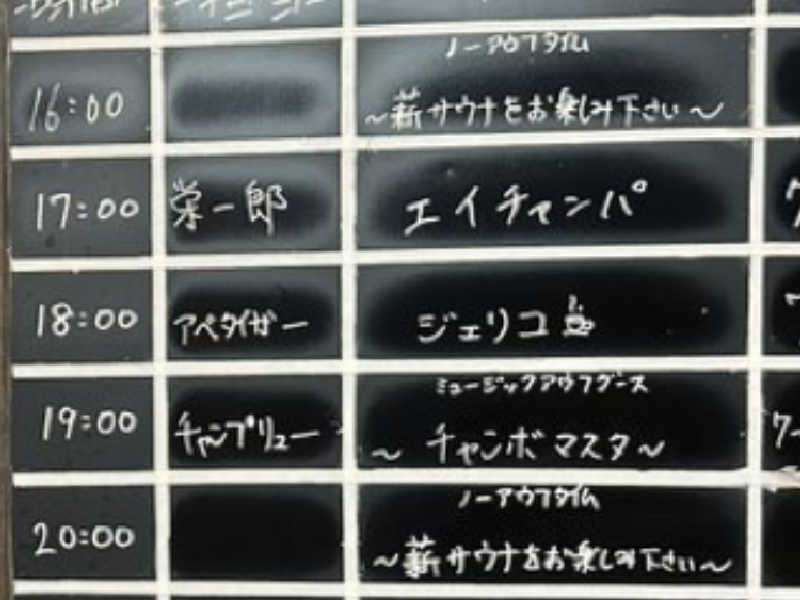 16:00
ノーアウフタイム
～薪サウナをお楽しみ下さい～
17:00
栄一郎
エイチャンパ
18:00
アペタイザー
ジェリコ
19:00
チャンプリュー
ミュージックアウフグース
～チャンボマスタ～
20:00
ノーアウフタイム
～薪サウナをお楽しみ下さい～